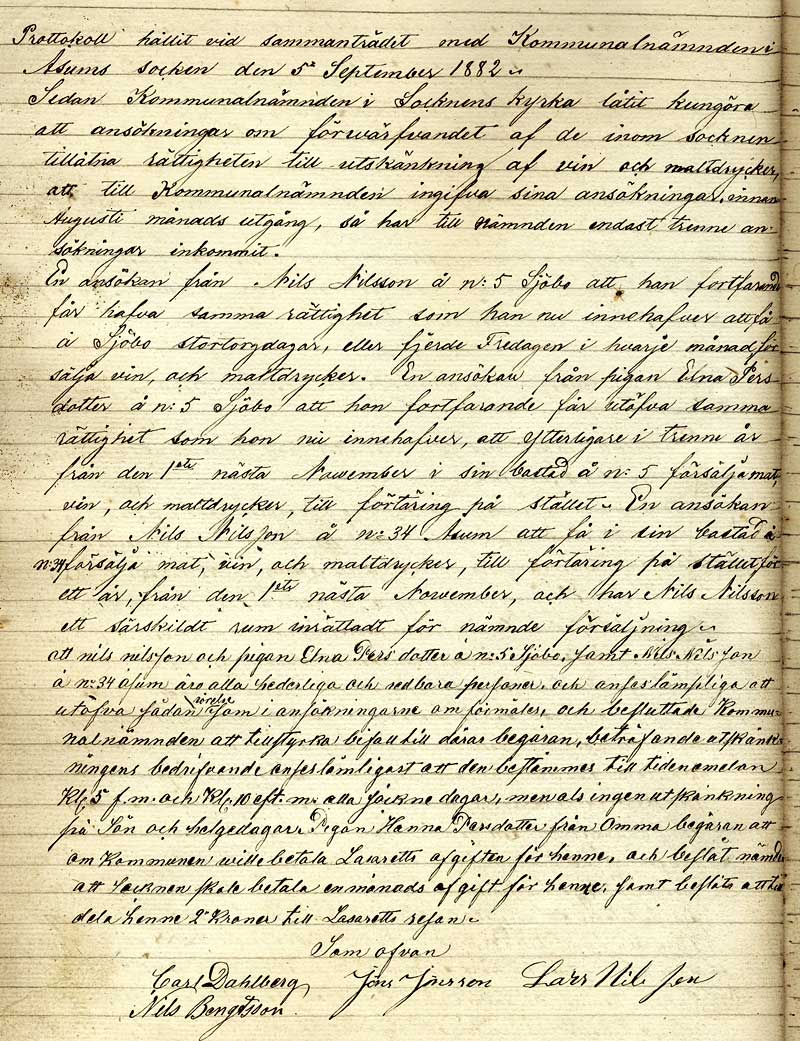 Prottokoll hållit vid sammanträdet med Kommunalnämnden i
Asums socken den 5te September 1882.
Sedan Kommunalnämnden i Socknens kyrka låtit kungöra
att ansökningar om förwärfvandet af de inom socknen
tillåtna rättigheten till utskänkning af vin och maltdrycker,
att till Kommunalnämnden ingifva sina ansökningar, innan
Augusti månads utgång, så har till nämnden endast trenne an-
sökningar inkommit.
En ansökan från Nils Nilsson å n: 5 Sjöbo att han fortfarande
får hafva samma rättighet som han nu innehafver att få
å Sjöbo stortorgdagar, eller fjerde Fredagen i hvarje månad för
sälja vin, och maltdrycker. En ansökan från pigan Elna Pers
dotter å n: 5 Sjöbo att hon fortfarande får utöfva samma
rättighet som hon nu innehafver, att ytterligare i trenne år
från den 1ste nästa Nowember i sin bostad å n: 5 försälja mat,
vin, och maltdrycker, till förtäring på stället. En ansökan
från Nils Nilsson å n: 34 Asum att få i sin bostad å
n: 34 försälja mat, vin, och maltdrycker, till förtäring på stället för
ett år, från den 1ste nästa Nowember, och har Nils Nilsson
ett särskildt rum inrättadt för nämnde försäljning.
att nils nilsson och pigan Elna Persdotter å n: 5 Sjöbo, samt Nils Nilsson
å n: 34 asum äro alla hederliga och redbara personer, och anses lämpliga att
utöfva sådan rörelse som i ansökningarne om förmäles, och besluttade Kommu-
nalnämnden att tillstyrka bifall till däras begäran, beträfande utskänk-
ningens bedrifvande anses lämligast att den bestämmes till tiden emelan
Kl. 5 f.m. och Kl. 10 eft. m. alla söckne dagar, men als ingen utskänkning
på Sön och helgedagar. Pigan Hanna Persdotter från Omma begäran att
om kommunen wille betala Lasaretts afgiften för henne, och beslöt nämden
att Socknen skale betala en månads afgift för henne, samt beslöts att till
dela henne 2 Kronor till Lasaretts resan.
Som ofvan
Carl Dahlberg Jöns Jönsson Lars Nilsson
Nils Bengtsson